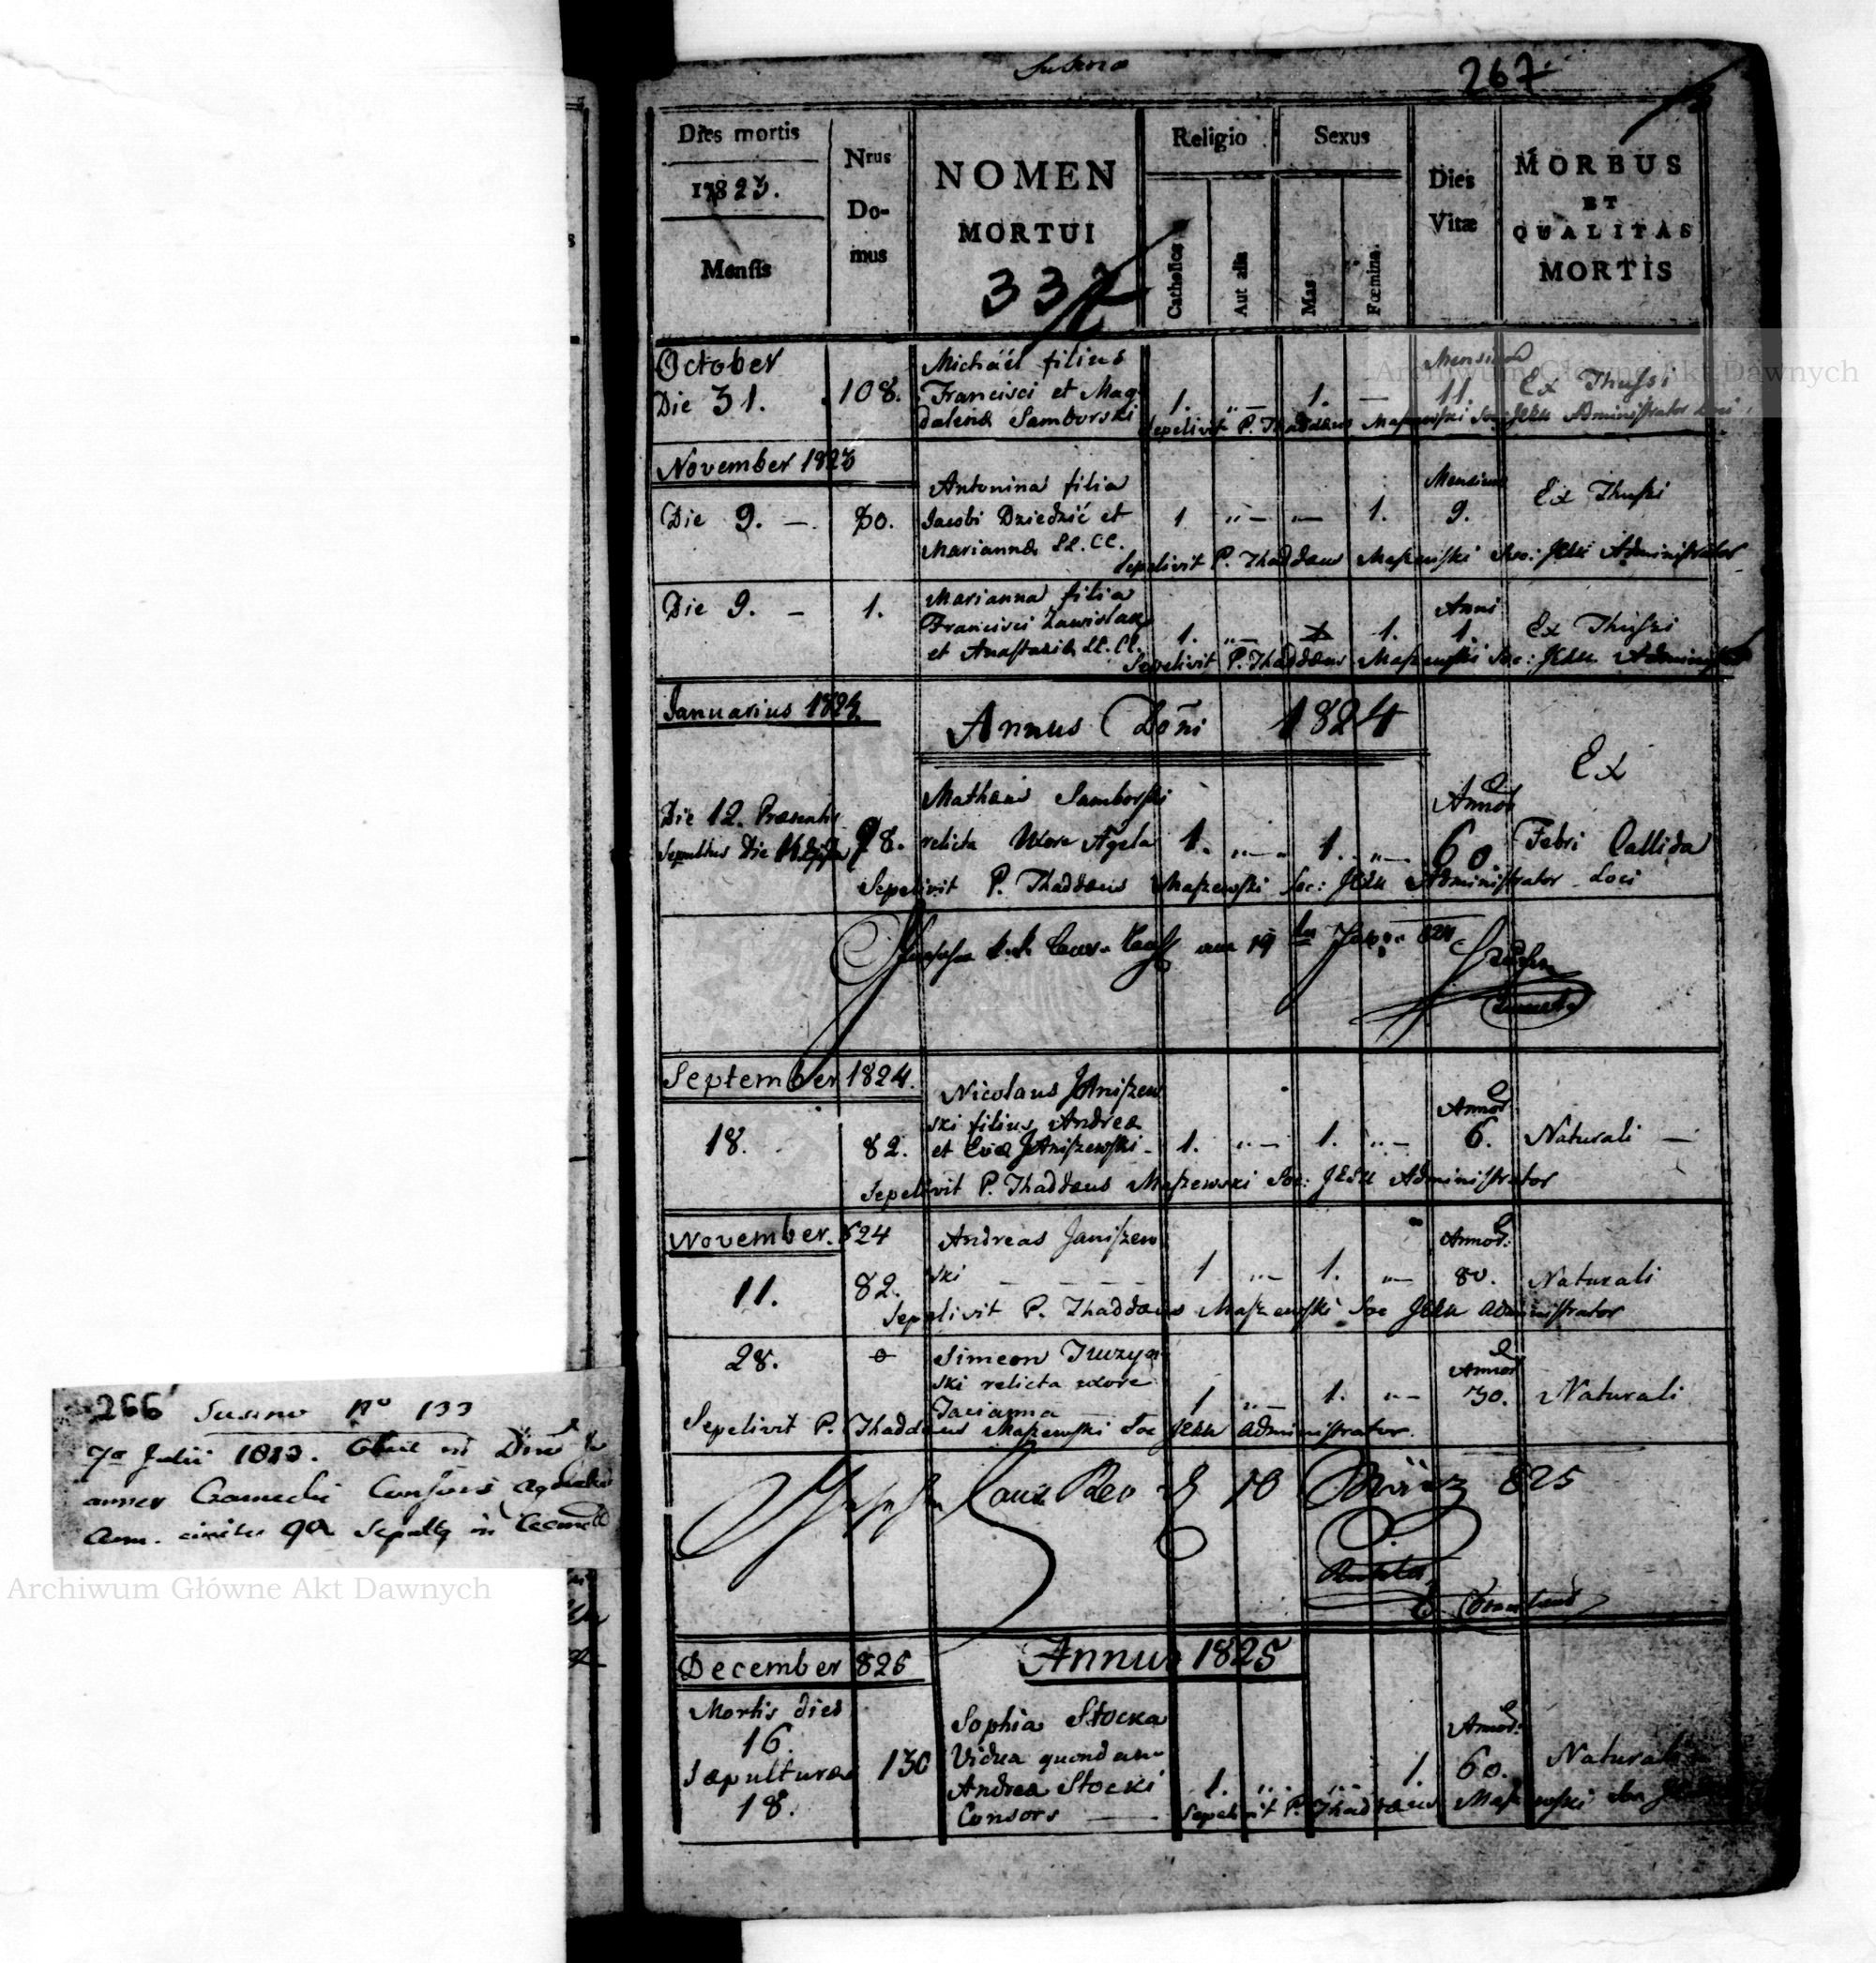 Susno
267
Dies mortis
1823.
Mensis
Nrus
Do-
mus
NOMEN
MORTUI
337
Religio
Catholica
Aut alia
Sexus
Mas
Fœmina
Dies
Vitæ
MORBUS
ET
QUALITAS
MORTIS
October
Die 31.
108.
Michäel filius
Francisci et Mag
dalenæ Samborski
1.
1. —
Mensium
11.
Ex Thussi
Sepelivit P. Thaddæus Maszewski Soc: JESU Administrator Loci
November 1823
Die 9. —
80.
Antonina filia
Jacobi Dziedzić et
Mariannæ LL. CC.
1
1.
Mensium
9.
Ex Thussi
Sepelivit P. Thaddæus Maszewski Soc: JESU Administrator
Die 9. —
1.
Marianna filia
Francisci Zawislak
et Anastasiæ LL. CC.
1.
1.
Anni
1.
Ex Thussi
Sepelivit P. Thaddæus Maszewski Soc: JESU Administrator
Januarius 1824
Annus Dōni 1824
Die 12. Præsentis
Sepultus Die
98.
Mathæus Samborski
relicta Uxore Agela
1.
1.
Annor
60.
Ex
Febri Callida
Sepelivit P. Thaddæus Maszewski Soc: JESU Administrator Loci
19
824
September 1824.
18.
82.
Nicolaus JAniszew
ski filius Andreæ
et Evæ JAniszewski
1.
1.
Annor
6.
Naturali —
Sepelivit P. Thaddæus Maszewski Soc: JESU Administrator
November. 824
11.
82.
Andreas Janiszew
ski
1
1.
Annor.
80.
Naturali
Sepelivit P. Thaddæus Maszewski Soc JESU Administrator
28.
Simeon
ski relicta uxore
1
1.
Annor
70.
Naturali
Sepelivit P. Thaddæus Maszewski Soc JESU Administrator.
10 März 825
December 825
Annus 1825
Mortis dies
16.
Sæpulturæ
18.
130
Sophia Stocka
Vidua quondam
Andreæ Stocki
Consors
1.
1.
Annor.
60.
Naturali
Sepelivit P. Thaddæus Maszewski Soc JESU
266 Susno No 133
7a Julii 1823. Obiit in Dno
Consors
Ann. circiter 90 Sepultq in
Archiwum Główne Akt Dawnych
Archiwum Główne Akt Dawnych